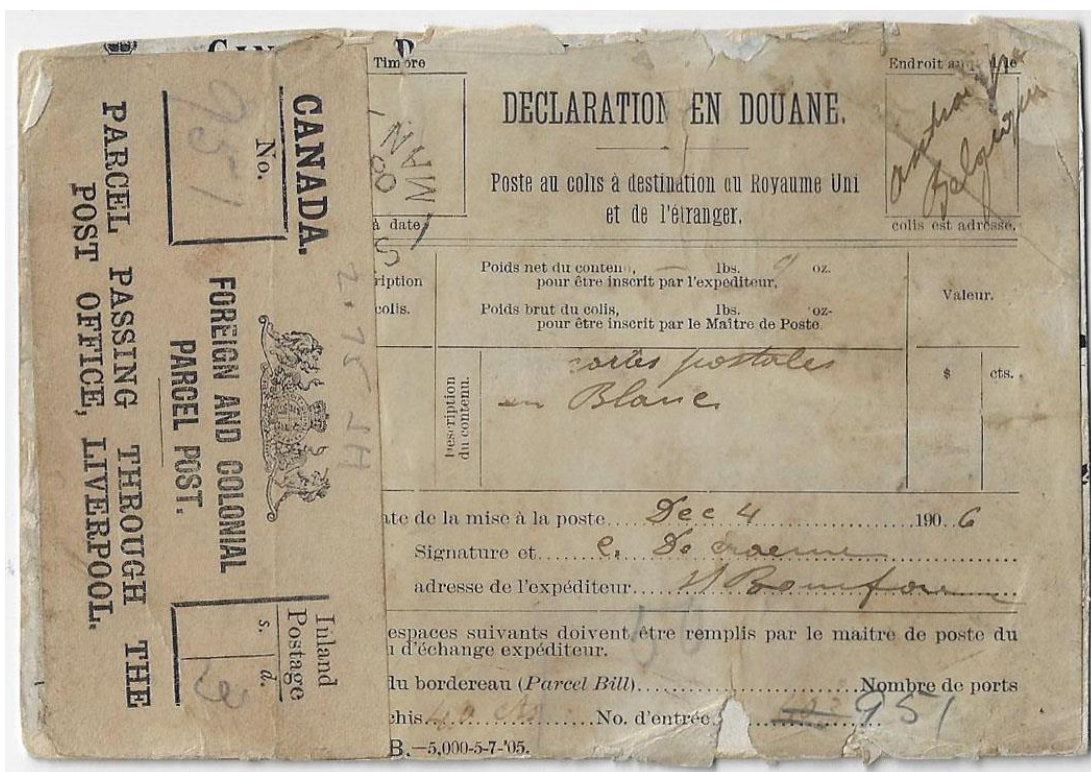 CANADA.
No.
951
FOREIGN AND COLONIAL
PARCEL POST.
Inland
Postage
s. d.
3
PARCEL PASSING THROUGH THE
POST OFFICE, LIVERPOOL.
Timbre
MAN
à date
DECLARATION EN DOUANE.
Poste au colis à destination du Royaume Uni
et de l'étranger.
Endroit
Belgique
colis est adressé.
ription
colis.
Poids net du contenu, — lbs. 9 oz.
pour être inscrit par l'expéditeur.
Poids brut du colis, lbs. oz-
pour être inscrit par le Maître de Poste.
Valeur.
$ cts.
Description
du contenu.
cartes postales
en Blanc
ate de la mise à la poste....Dec 4....1906
Signature et
adresse de l'expéditeur
espaces suivants doivent être remplis par le maitre de poste du
d'échange expéditeur.
du bordereau (Parcel Bill)..........Nombre de ports
chis........No. d'entrée 951
B.—5,000-5-7-'05.